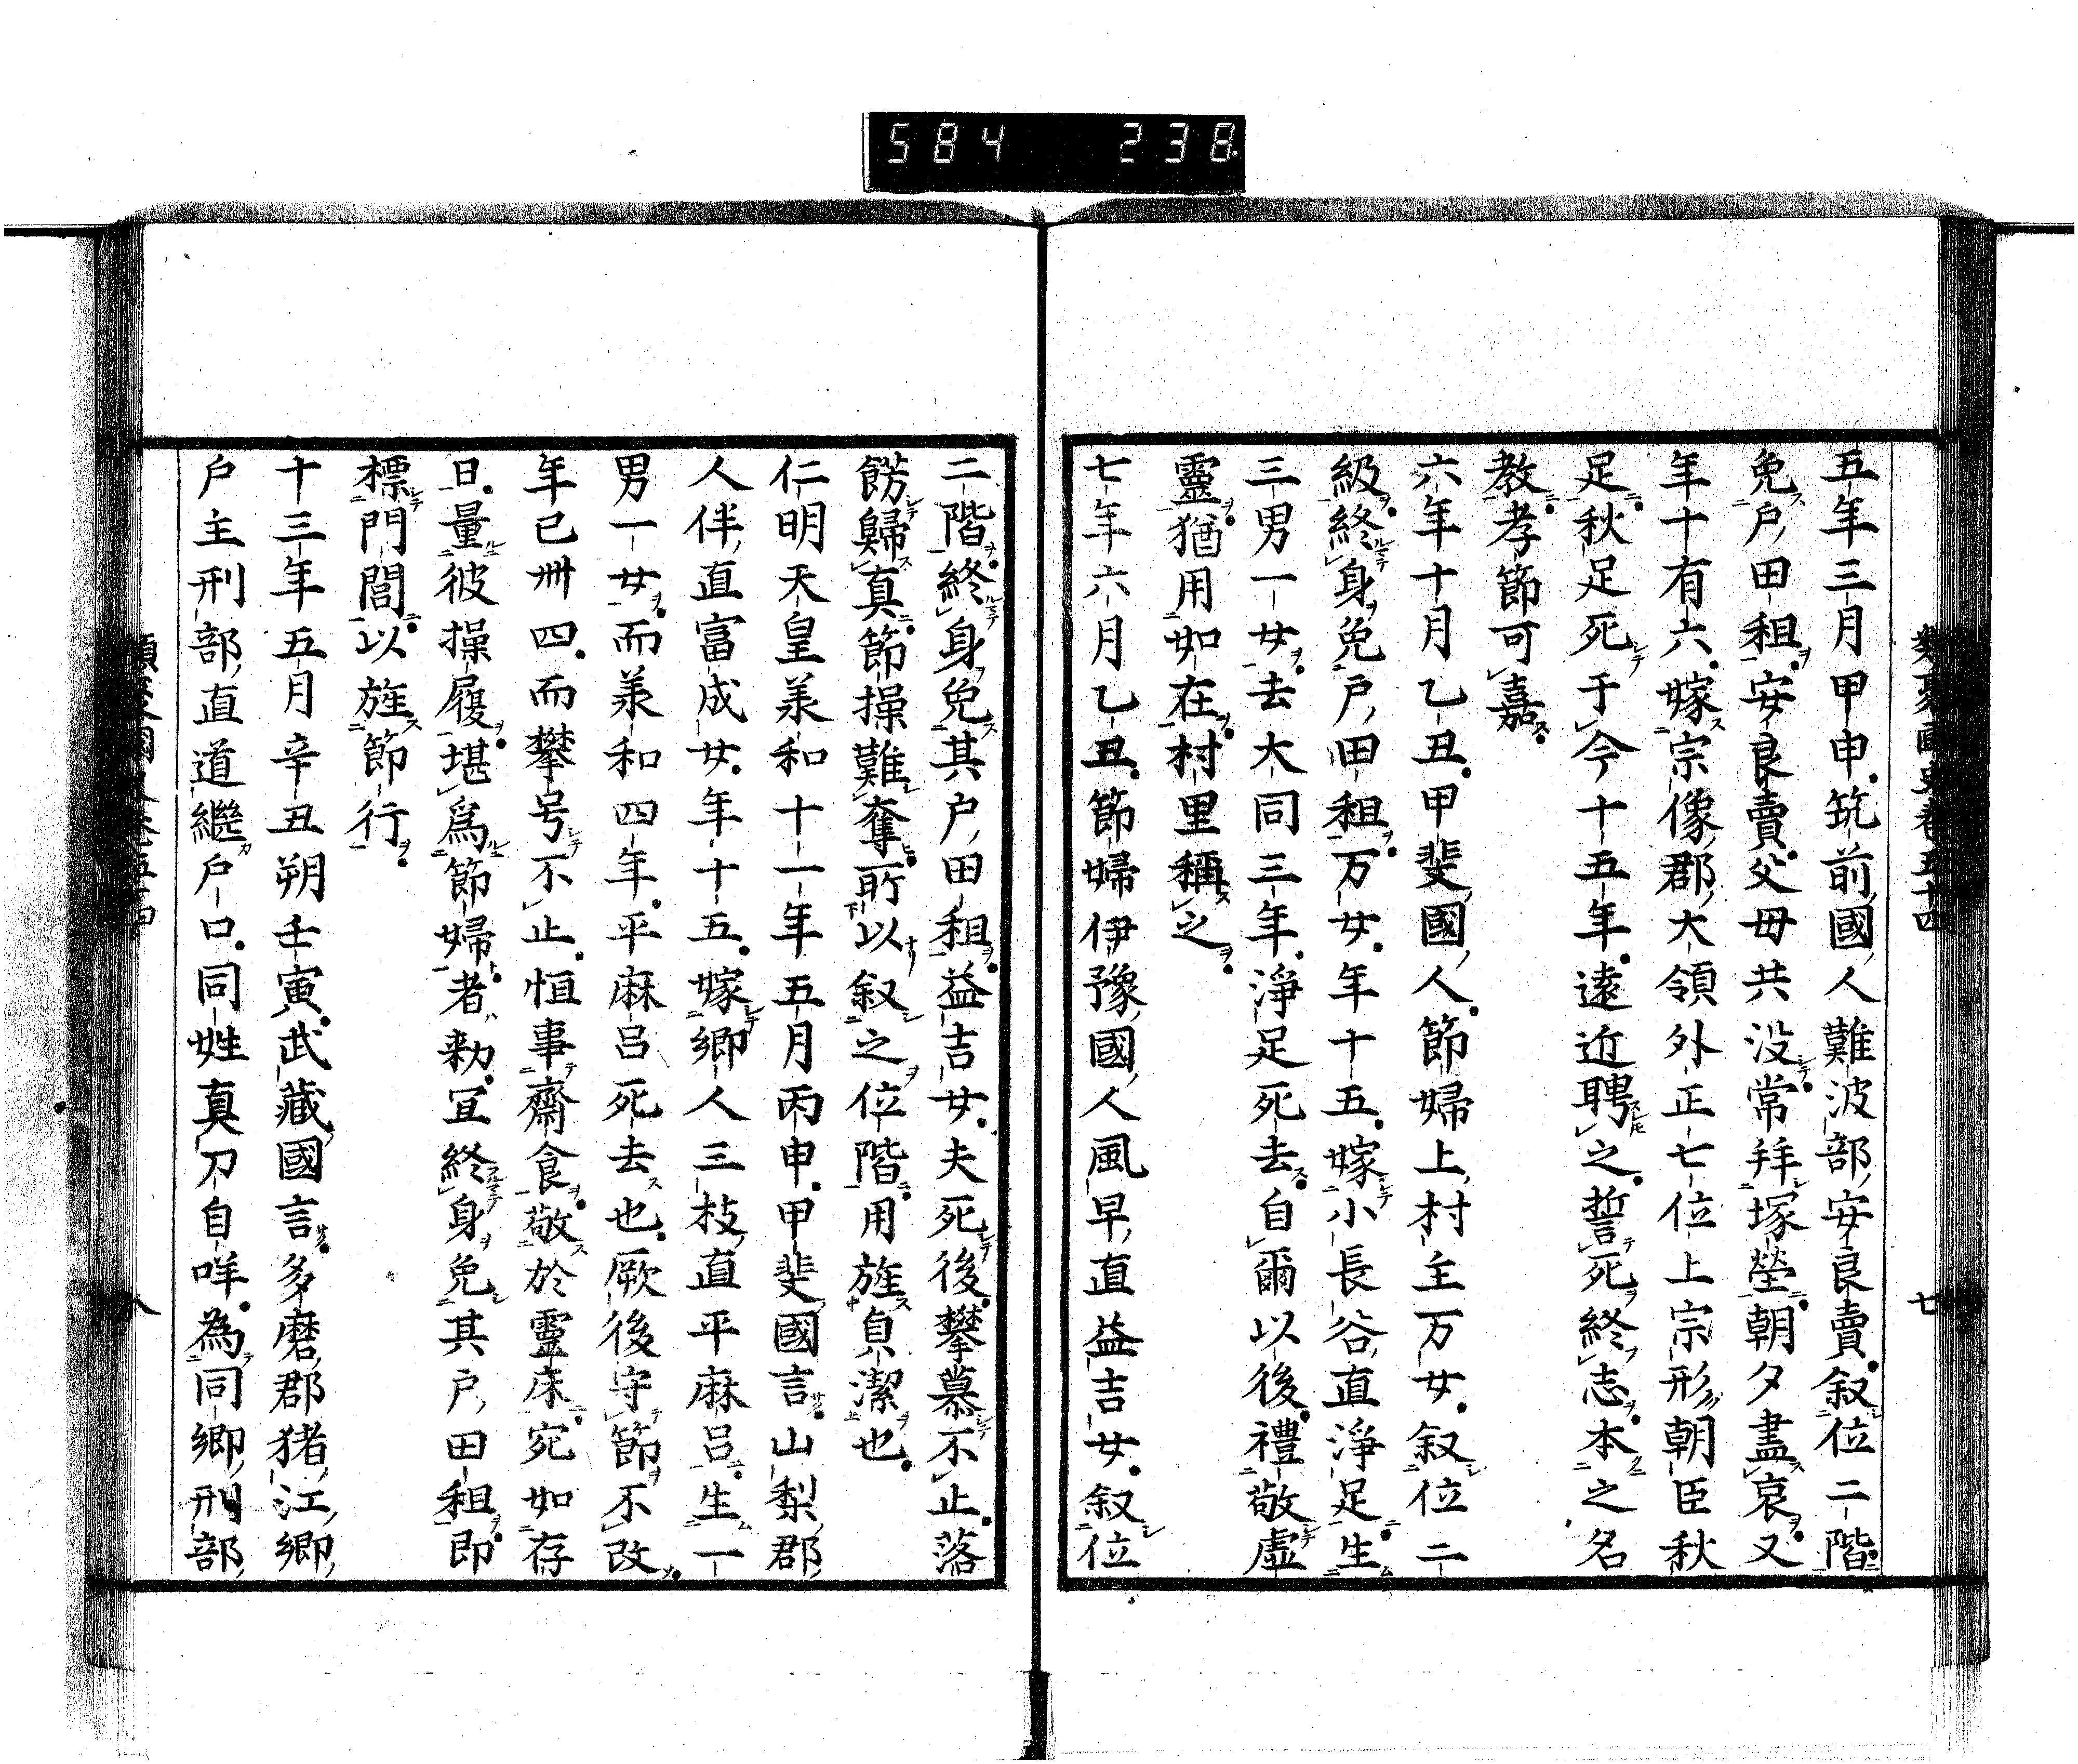 584 238
類聚國史卷五十四 七
五年三月甲申筑前國人難波部安良賣叙位二階
免戸田租安良賣父母共没常拜塚塋朝夕盡哀又
年十有六嫁宗像郡大領外正七位上宗形朝臣秋
足秋足死于今十五年遠近聘之誓死終志本之名
教孝節可嘉
六年十月乙丑甲斐國人節婦上村主万女叙位二
級終身免戸田租万女年十五嫁小長谷直浄足生
三男一女去大同三年浄足死去自爾以後禮敬虚
靈猶用如在村里稱之
七年六月乙丑節婦伊豫國人風早直益吉女叙位
二階終身免其戸田租益吉女夫死後攀慕不止落
餝歸真節操難奪所以叙之位階用旌貞潔也
仁明天皇羕和十一年五月丙申甲斐國言山梨郡
人伴直富成女年十五嫁郷人三枝直平麻呂生一
男一女而羕和四年平麻呂死去也厥後守節不改
年已卌四而攀号不止恒事齋食敬於靈床宛如存
日量彼操履堪爲節婦者勅宜終身免其戸田租即
標門閭以旌節行
十三年五月辛丑朔壬寅武藏國言多磨郡猪江郷
戸主刑部直道繼戸口同姓真刀自咩為同郷刑部
類聚國史卷五十四 八